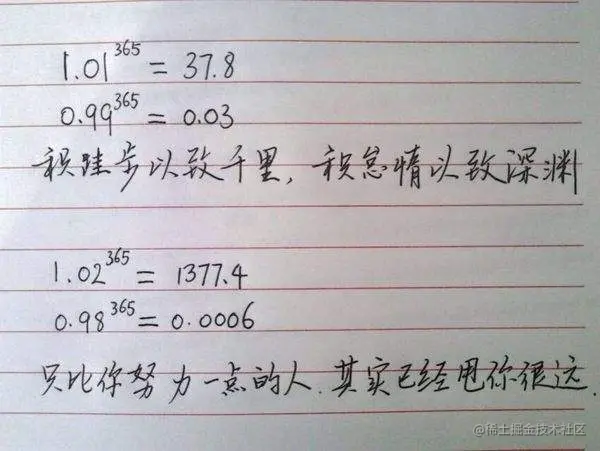 1.01^365 = 37.8
0.99^365 = 0.03
积跬步以致千里，积怠惰以致深渊
1.02^365 = 1377.4
0.98^365 = 0.0006
只比你努力一点的人.其实已经甩你很远.
@稀土掘金技术社区